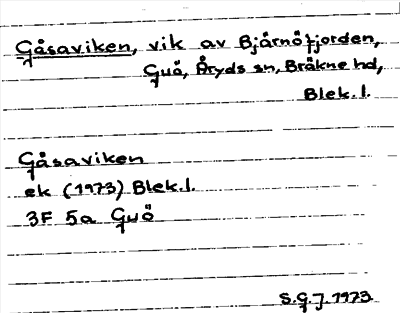 Gåsaviken, vik av Bjärnöfjorden,
Guö, Åryds sn, Bräkne hd,
Blek.l.
Gåsaviken
ek (1973) Blek.l.
3F 5a Guö
S.G.J. 1973